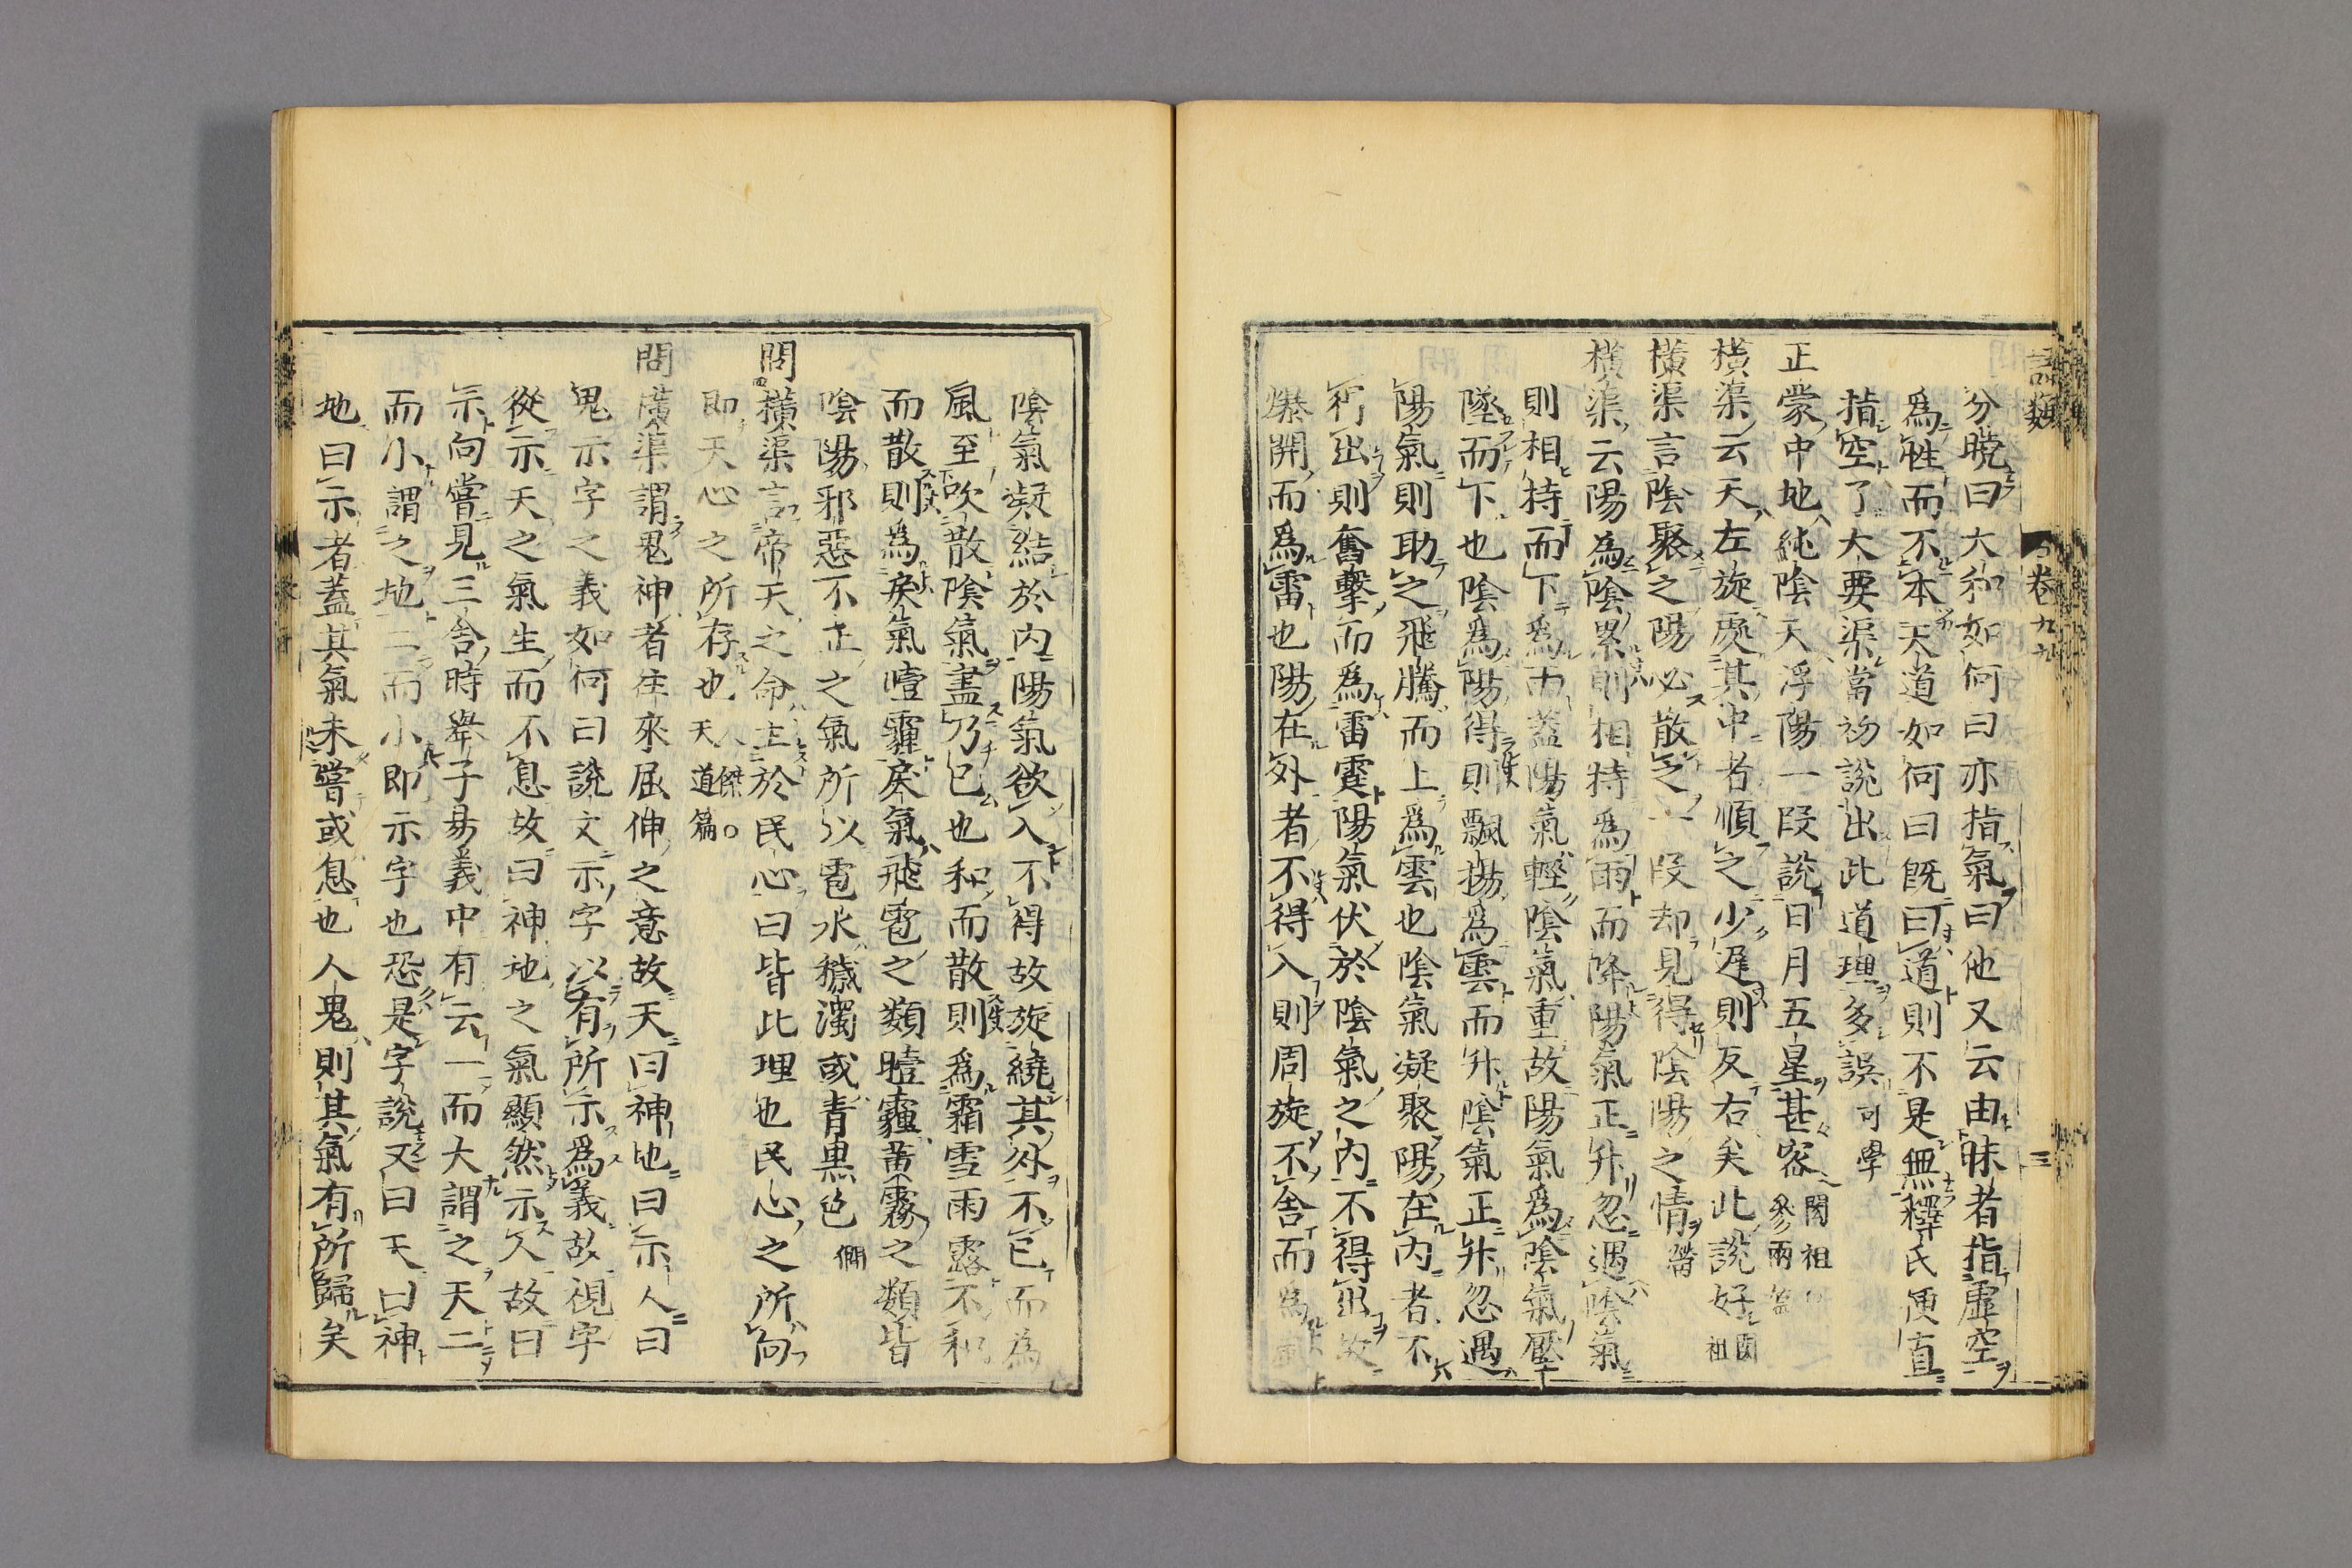 語類
卷九九
三
分曉曰大和如何曰亦指氣曰他又云由昧者指虛空
爲性而不本天道如何曰既曰道則不是無釋氏便直
指空了大要渠當初說出此道理多誤可學
正蒙中地純陰天浮陽一段說日月五星甚密閎祖參兩篇
橫渠云天左旋處其中者順之少遲則反右矣此說好閎祖
橫渠言陰聚之陽必散之一段却見得陰陽之情㽦
橫渠云陽為陰累則相持爲雨而降陽氣正升忽遇陰氣
則相持而下爲雨蓋陽氣輕陰氣重故陽氣爲陰氣壓
墜而下也陰為陽得則飄揚為雲而升陰氣正升忽遇
陽氣則助之飛騰而上爲雲也陰氣凝聚陽在內者不
得出則奮擊而為雷霆陽氣伏於陰氣之内不得出故
爆開而爲雷也陽在外者不得入則周旋不舍而為
陰氣凝結於内陽氣欲入不得故旋繞其外不已而為
風至吹散陰氣盡乃已也和而散則為霜雪雨露不和
而散則為戾氣曀霾戾氣飛雹之類曀霾黃霧之類皆
陰陽邪惡不正之氣所以雹水穢濁或青黑色僩
問橫渠言帝天之命主於民心曰皆此理也民心之所向
即天心之所存也人傑○天道篇
問橫渠謂鬼神者往來屈伸之意故天曰神地曰示人曰
鬼示字之義如何曰說文示字以有所示爲義故視字
從示天之氣生而不息故曰神地之氣顯然示人故曰
示向嘗見三舍時舉子易義中有云一而大謂之天二
而小謂之地二而小即示字也恐是字說又曰天曰神
地曰示者蓋其氣未嘗或息也人鬼則其氣有所歸矣